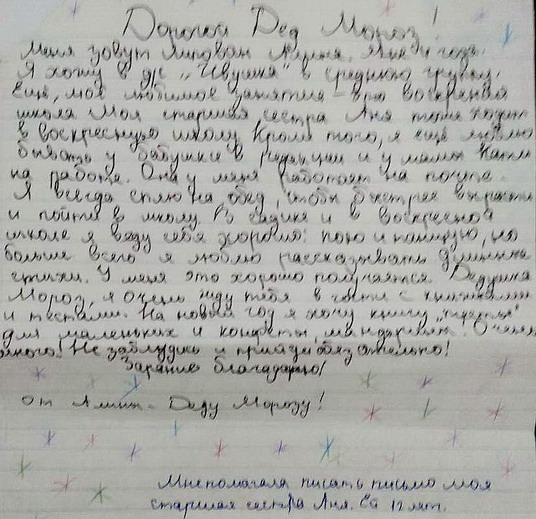 Дорогой Дед Мороз!
Меня зовут Алина. Мне 4 года.
Я хожу в д/с "Ивушка" в среднюю группу.
Ещё, моё любимое занятие - это воскресная
школа Моя старшая сестра Аня тоже ходит
в воскресную школу. Кроме того, я ещё люблю
бывать у бабушки в редакции и у мамы Кати
на работе. Она у меня работает на почте.
Я всегда сплю на обед, чтобы быстрее вырасти
и пойти в школу. В садике и в воскресной
школе я веду себя хорошо: пою и танцую, но
больше всего я люблю рассказывать длинные
стихи. У меня это хорошо получается. Дедушка
Мороз, я очень жду тебя в гости с книжками
и тестами. На новый год я хочу книгу
для маленьких и конфеты, мандарины! Очень
много! Не заблудись и приходи обязательно!
Заранее благодарю!
от Алины - Деду Морозу!
Мне помогала писать письмо моя
старшая сестра Аня. Ей 12 лет.